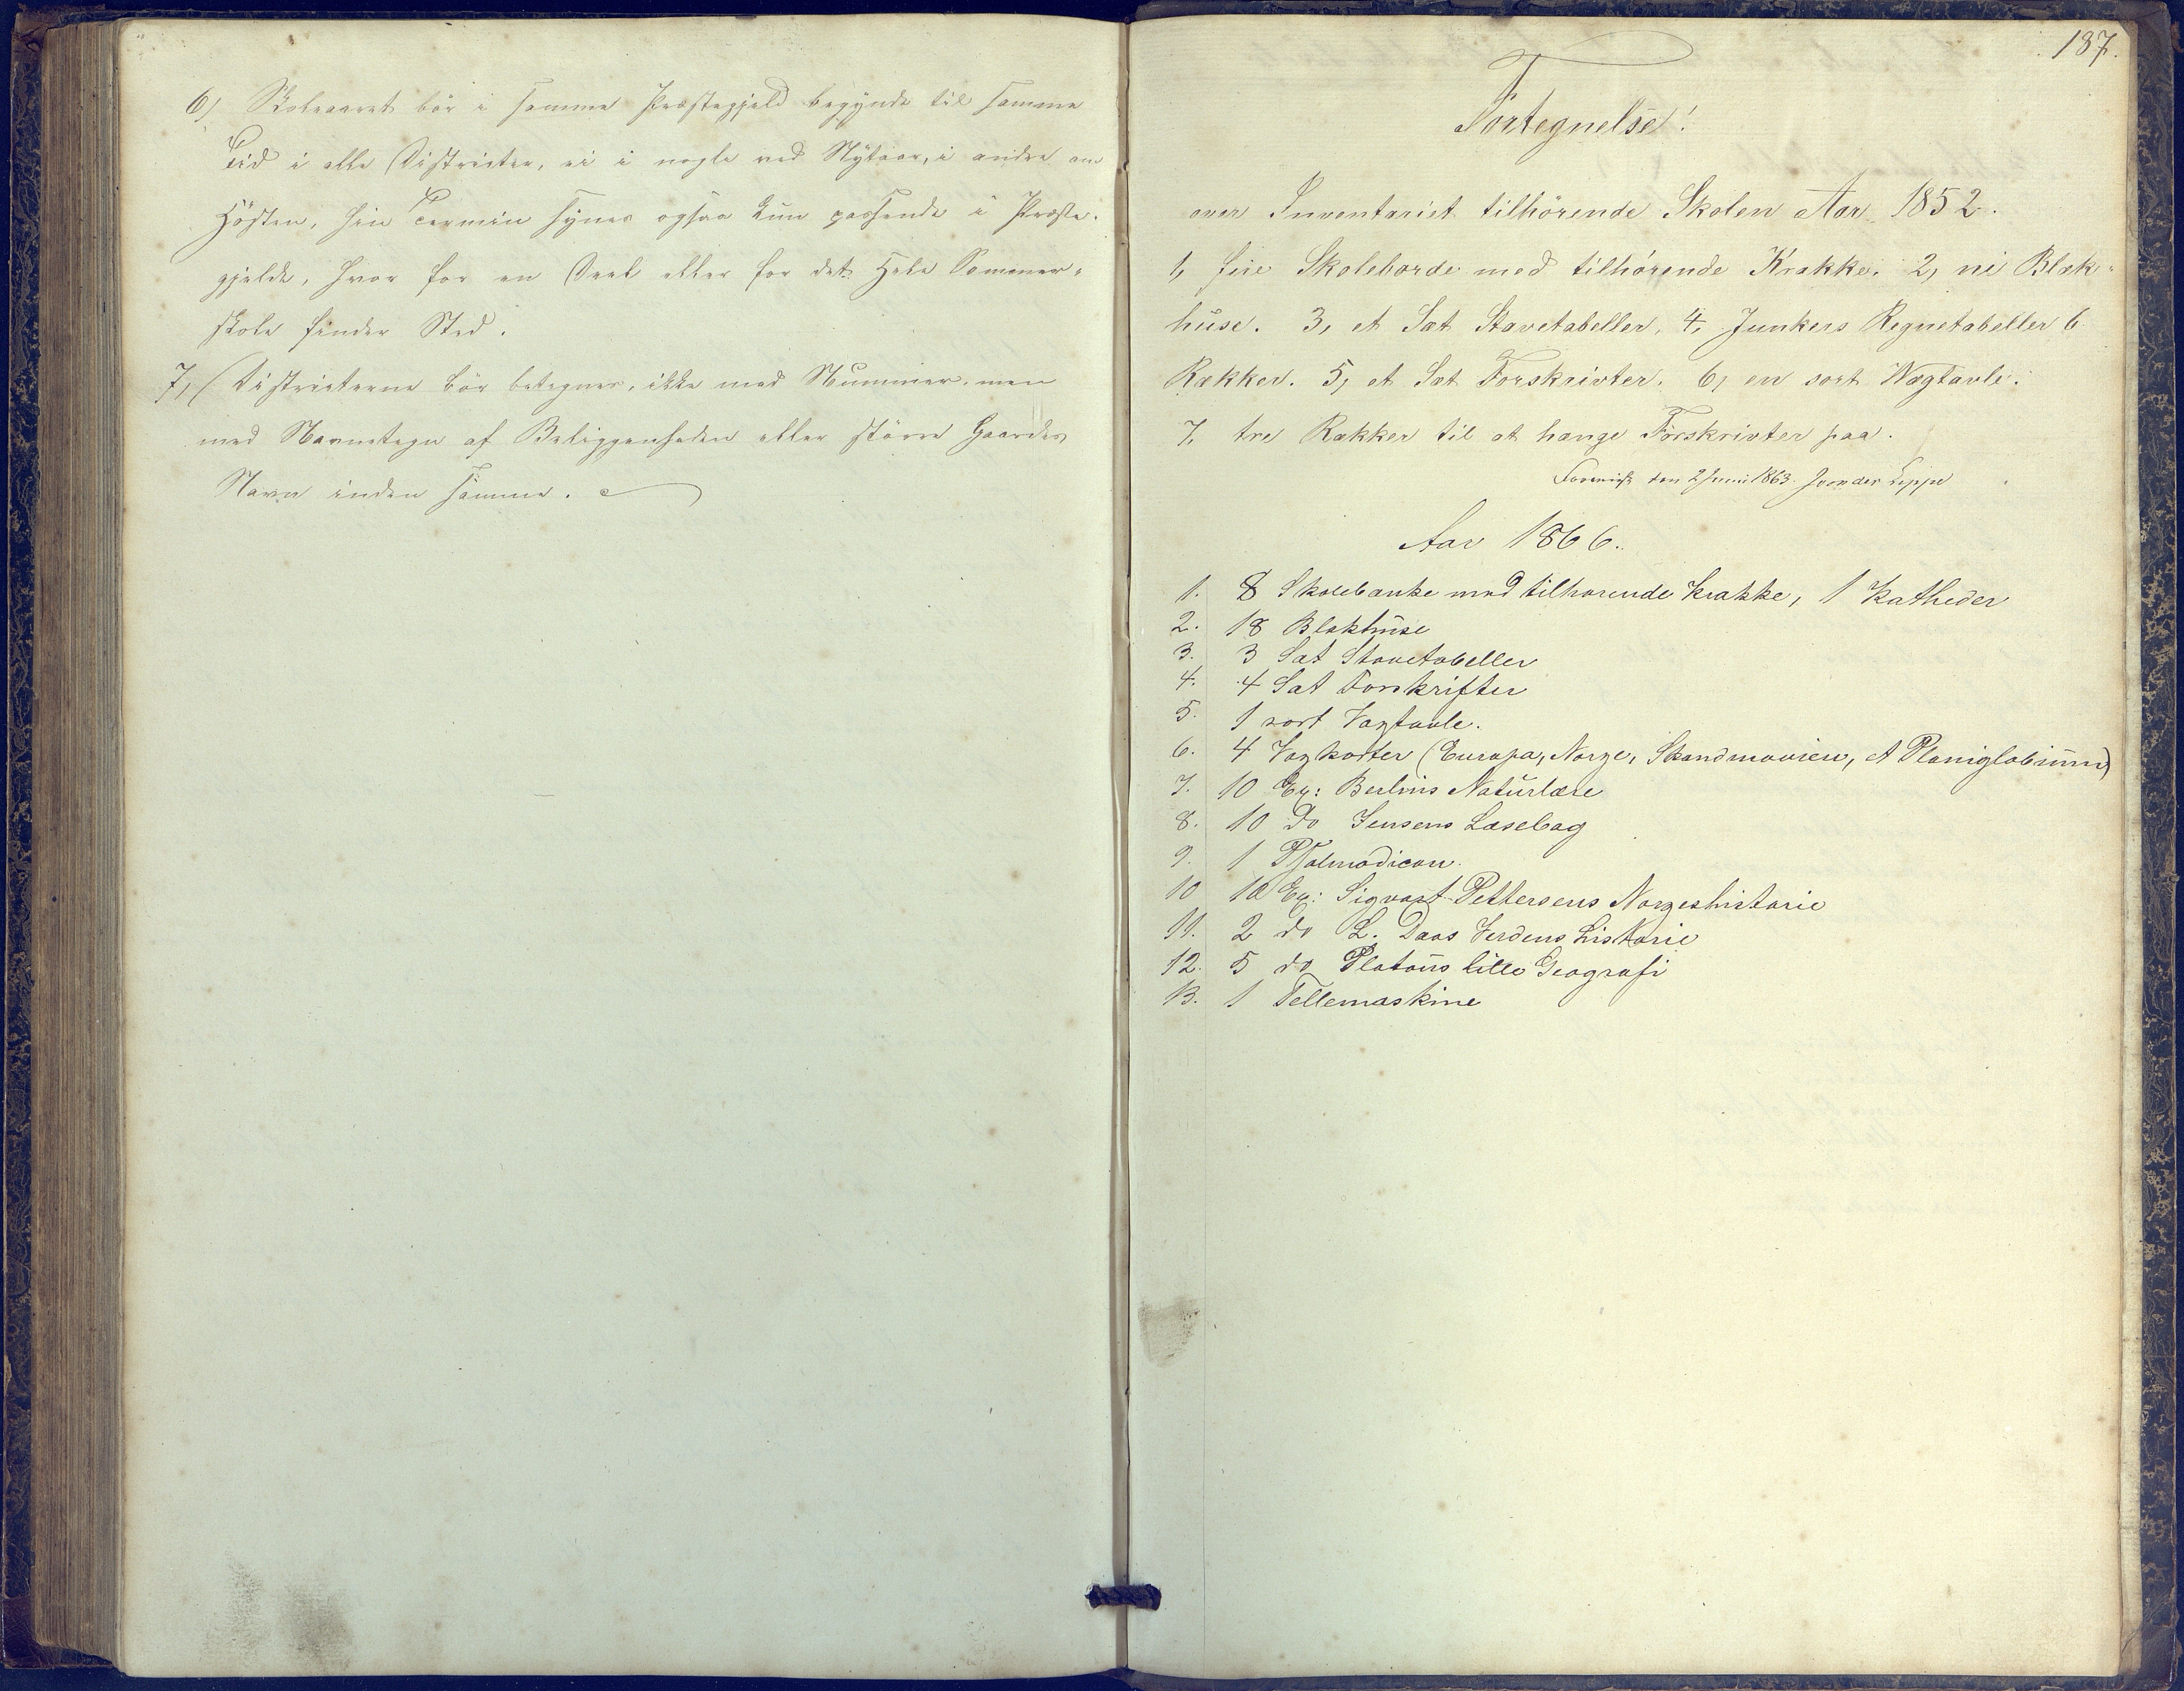 6) Skoleaaret bör i samme Præstegjeld begynde til samme
Tid i alle Districter, ei i nogle ved Nytaar, i andre om
Hösten, hin Termin synes ogsaa kun passende i Præste-
gjelde, hvor for en Deel eller for det Hele Sommer-
skole finder Sted.
7, Districterne bör betegnes, ikke med Nummer, men
med Navnetegn af Beliggenheden eller större Gaardes
Navn inden samme.
187.
Fortegnelse!
over Inventariet tilhörende Skolen Aar 1852.
1, fire Skoleborde med tilhörende Krakke. 2, ni Blæk-
huse. 3, et Sæt Stavetabeller, 4, Junkers Regnetabeller 6
Rækker. 5, et Sæt Forskrivter. 6, en sort Vægtavle.
7, tre Rækker til at hænge Forskrivter paa.
den 2 Juni 1863. J von der Lippe
Aar 1866.
1. 8 Skolebænke med tilhørende Krakke, 1 Katheder
2. 18 Blækhuse
3. 3 Sæt Stavetabeller
4. 4 Sæt Forskrifter
5. 1 sort Vægtavle.
6. 4 Vægkarter (Europa, Norge, Skandinavien, et Planiglobium)
7. 10 Ex: Berlins Naturlære
8. 10 do Jensens Læsebog
9. 1 Psalmodicon.
10 10 Ex: Sigvart Pettersens Norgeshistorie
11. 2 do L. Daas Verdens historie
12. 5 do Platous lille Geografi
13. 1 Tellemaskine